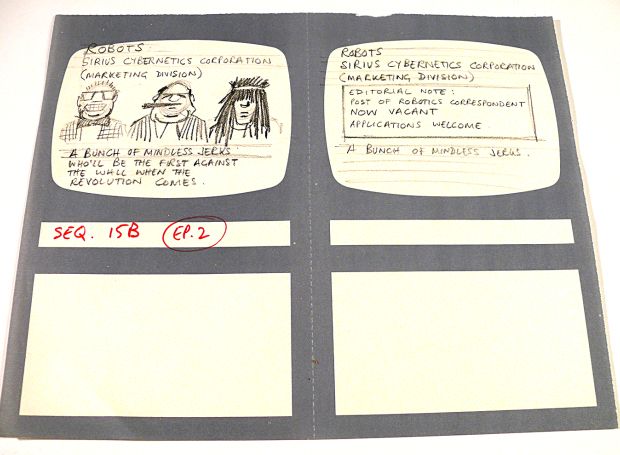 ROBOTS
SIRIUS CYBERNETICS CORPORATION
(MARKETING DIVISION)
A BUNCH OF MINDLESS JERKS
WHO'LL BE THE FIRST AGAINST
THE WALL WHEN THE
REVOLUTION COMES.
SEQ. 15B EP.2
ROBOTS
SIRIUS CYBERNETICS CORPORATION
(MARKETING DIVISION)
EDITORIAL NOTE:
POST OF ROBOTICS CORRESPONDENT
NOW VACANT
APPLICATIONS WELCOME
A BUNCH OF MINDLESS JERKS.